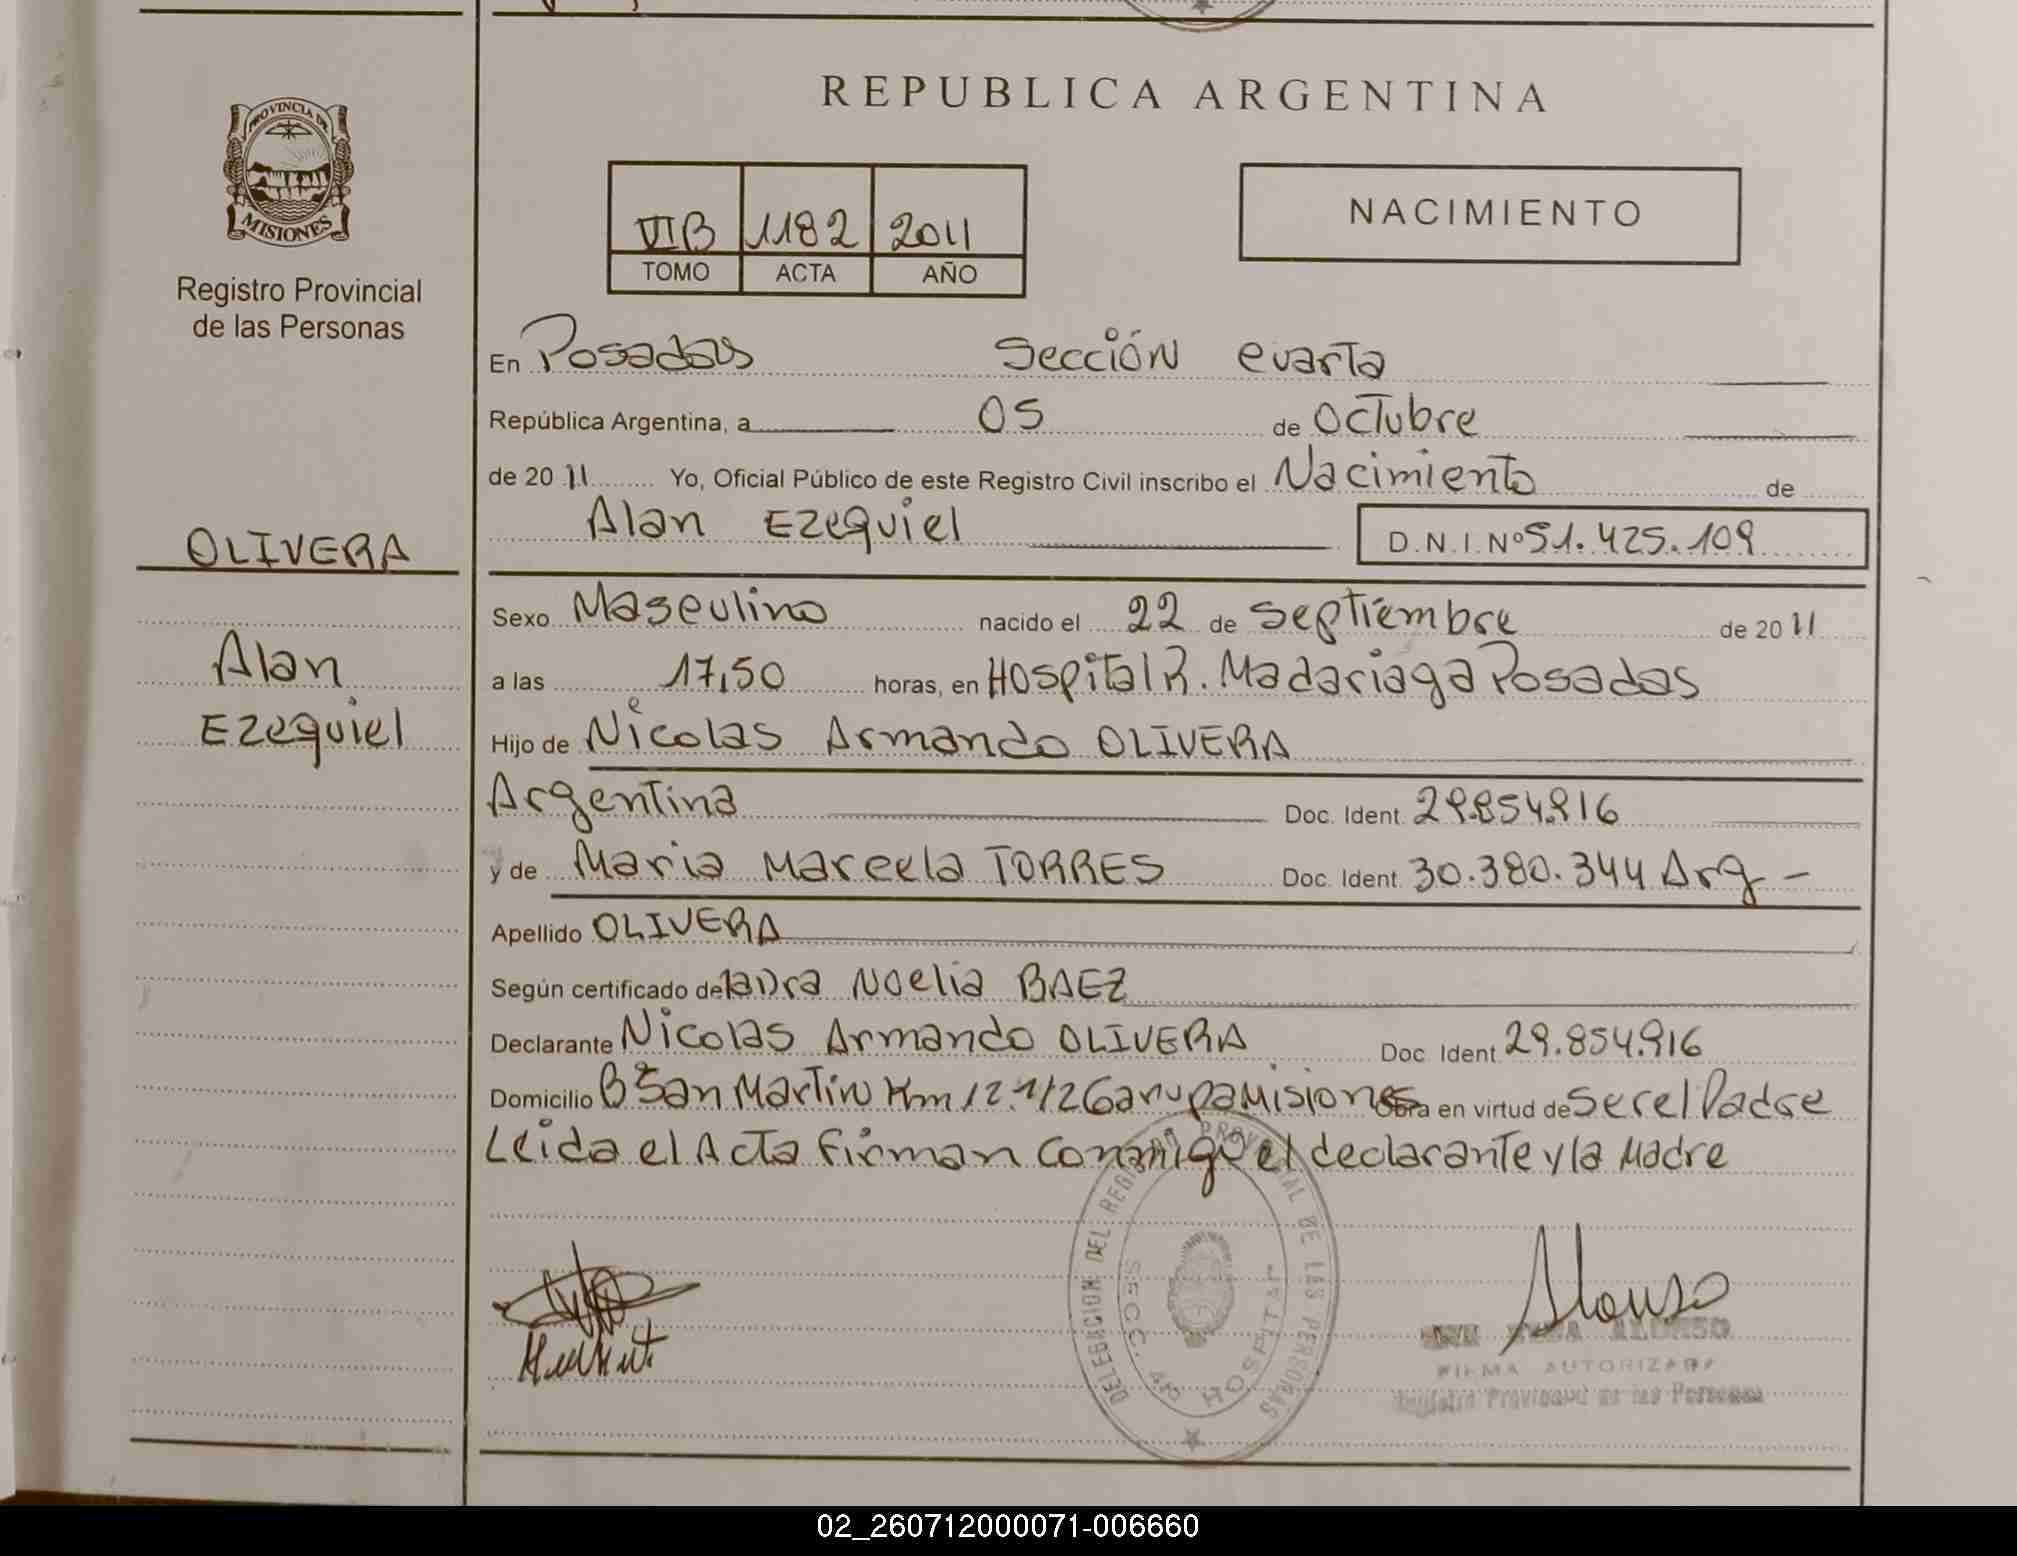 REPUBLICA ARGENTINA
PROVINCIA DE
MISIONES
Registro Provincial
de las Personas
VIB 1182 2011
TOMO ACTA AÑO
NACIMIENTO
En Posadas Sección cuarta
República Argentina, a 05 de Octubre
de 2011 Yo, Oficial Público de este Registro Civil inscribo el Nacimiento de
Alan Ezequiel D.N.I. Nº 51.425.109
OLIVERA
Alan
Ezequiel
Sexo Masculino nacido el 22 de septiembre de 2011
a las 17,50 horas, en Hospital R. Madariaga Posadas
Hijo de Nicolas Armando OLIVERA
Argentina Doc. Ident. 29.854.916
y de Maria Marcela TORRES Doc. Ident. 30.380.344 Arg -
Apellido OLIVERA
Según certificado de la Dra Noelia BAEZ
Declarante Nicolas Armando OLIVERA Doc. Ident 29.854.916
Domicilio Bº San Martin Km 12.1/2 Garupa Misiones Obra en virtud de ser el Padre
Leida el Acta firman conmigo el declarante y la Madre
DELEGACION DEL REGISTRO PROVINCIAL DE LAS PERSONAS
SECC. 4º HOSPITAL
Alonso
ROSA ALONSO
FIRMA AUTORIZADA
Registro Provincial de las Personas
02_260712000071-006660